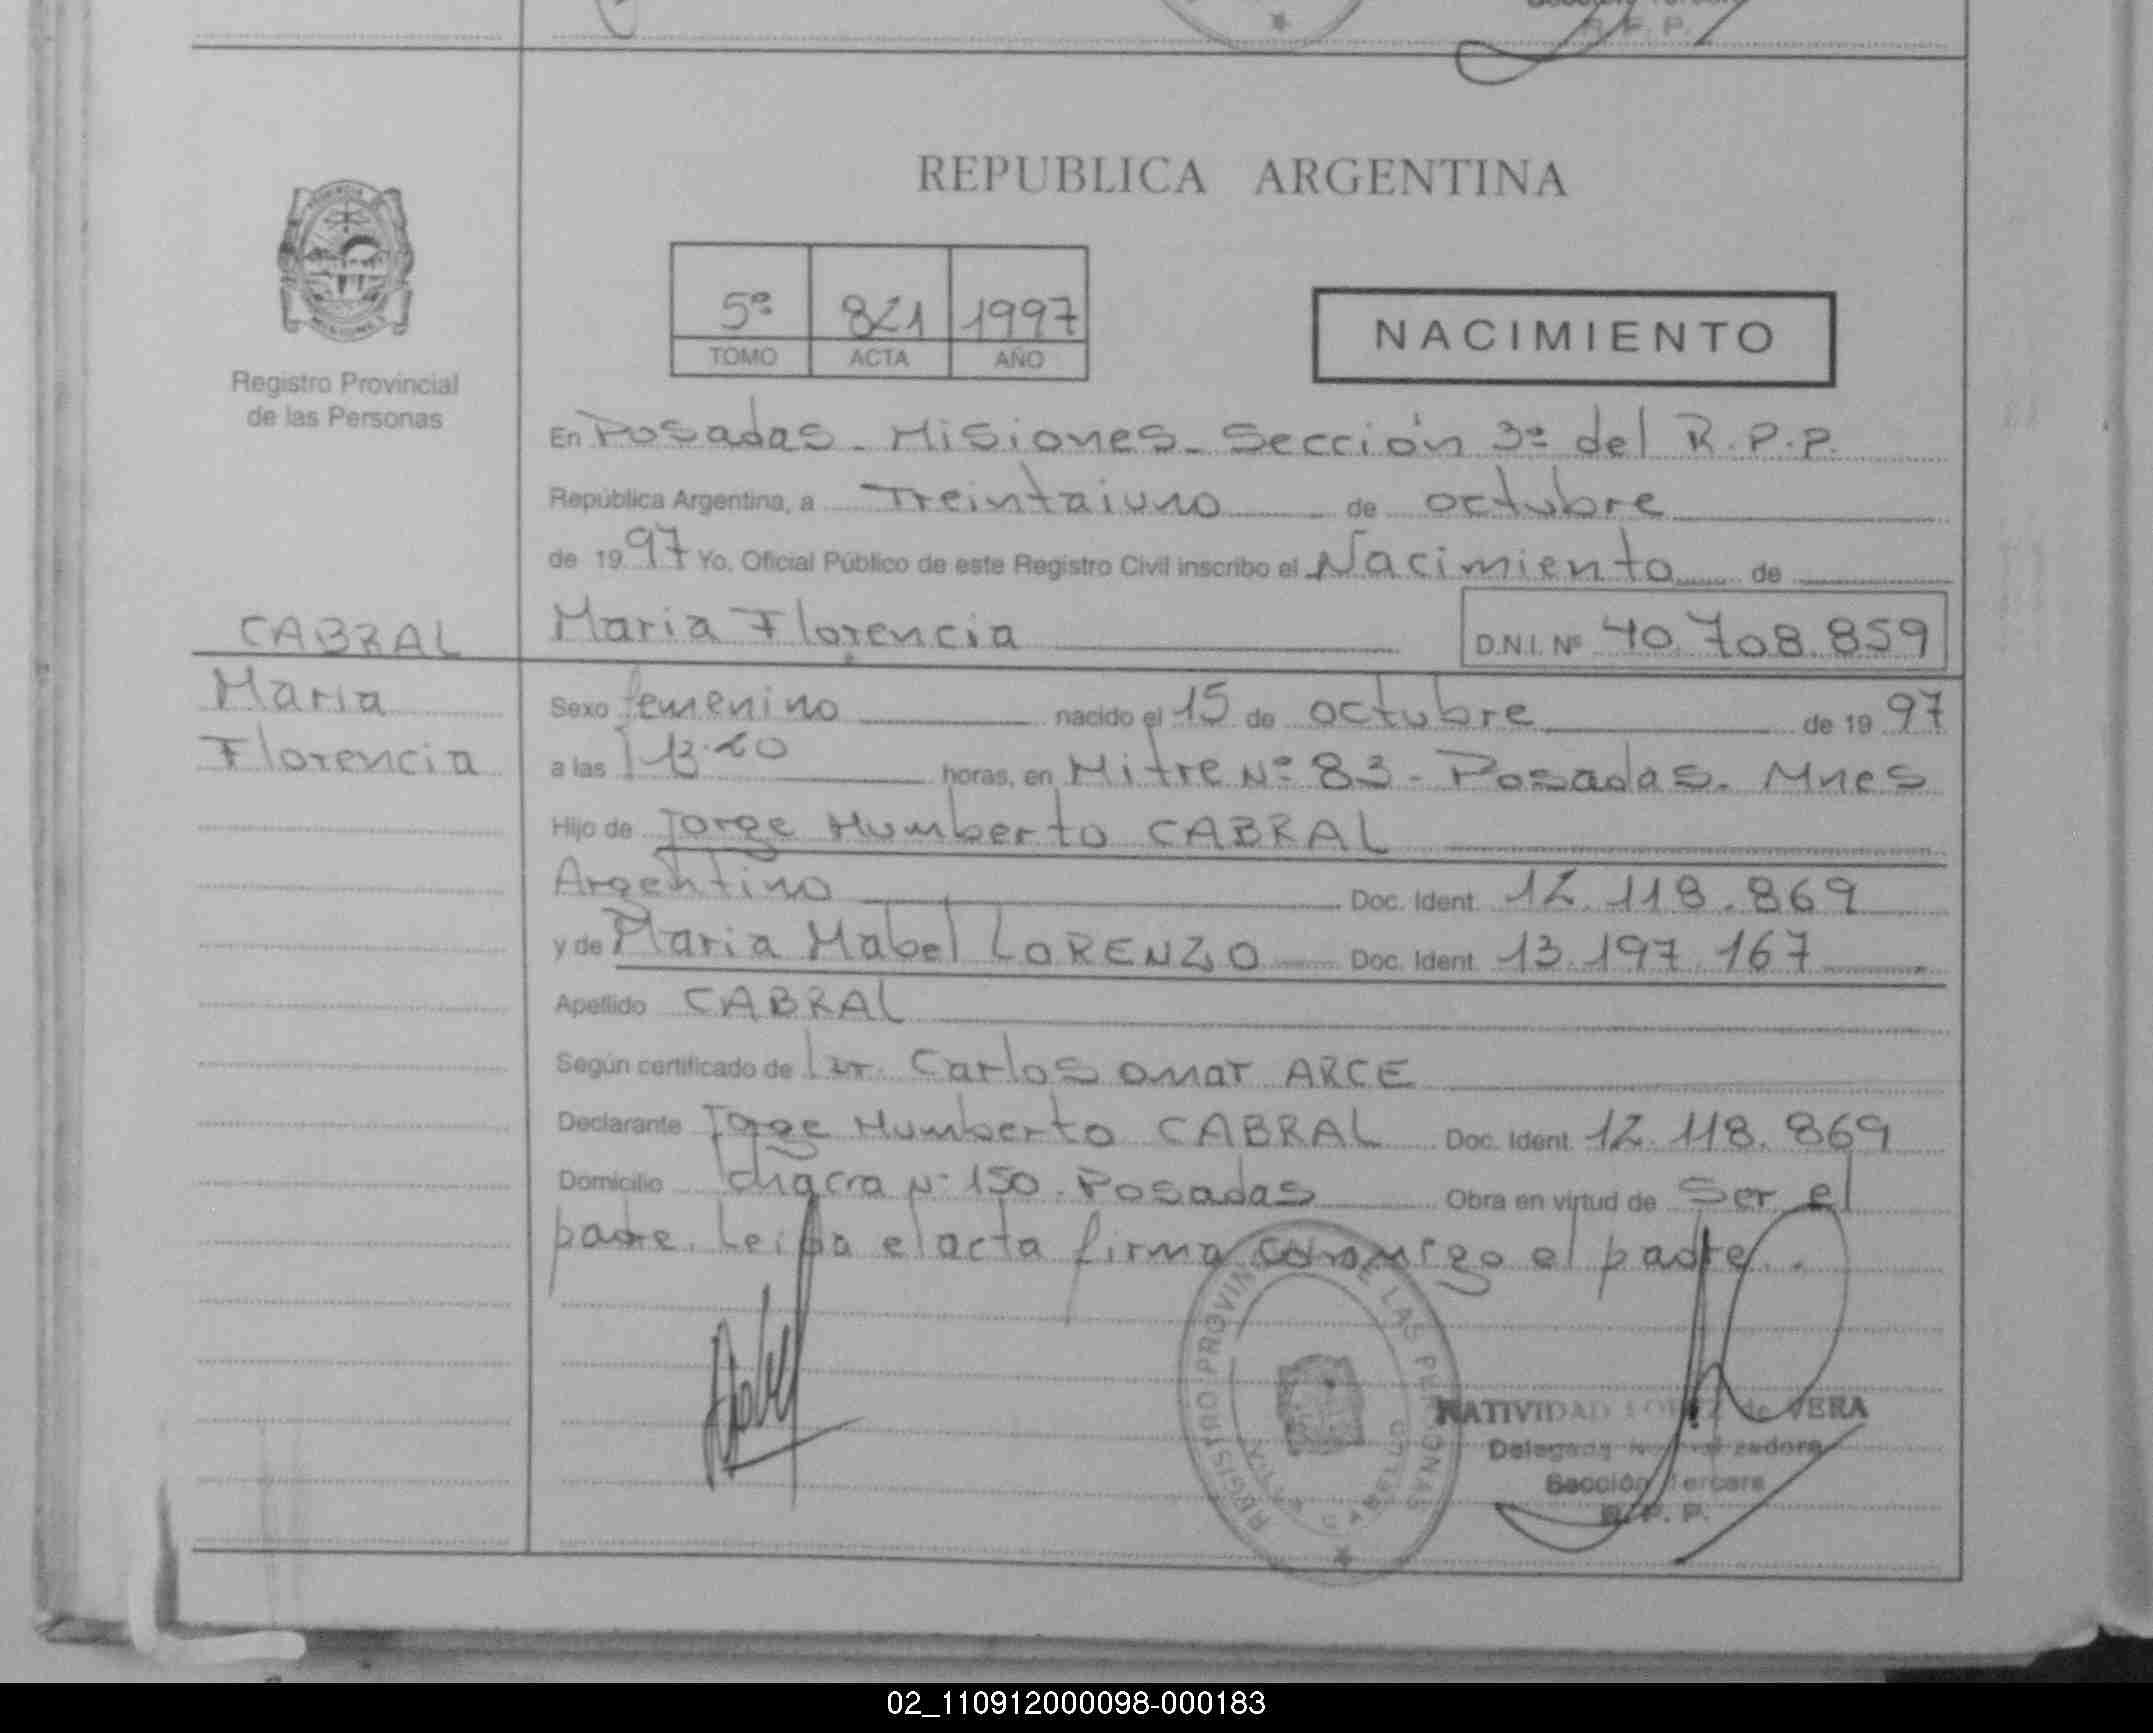 R. P. P.
REPUBLICA ARGENTINA
5º 821 1997
TOMO ACTA AÑO
NACIMIENTO
Registro Provincial
de las Personas
En Posadas - Misiones - Sección 3º del R.P.P.
República Argentina, a Treintaiuno de octubre
de 1997 Yo, Oficial Público de este Registro Civil inscribo el Nacimiento de
CABRAL
Maria Florencia D.N.I. Nº 40.708.859
Maria
Florencia
Sexo femenino nacido el 15 de octubre de 1997
a las horas, en Mitre Nº 83 - Posadas. Mnes
Hijo de Jorge Humberto CABRAL
Argentino Doc. Ident. 12.118.869
y de Maria Mabel LORENZO Doc. Ident. 13.197.167
Apellido CABRAL
Según certificado de Carlos Omar ARCE
Declarante Jorge Humberto CABRAL Doc. Ident. 12.118.869
Domicilio chacra Nº 150. Posadas Obra en virtud de Ser el
padre. Leida el acta firma conmigo el padre.
REGISTRO PROVINCIAL DE LAS PERSONAS
NATIVIDAD LOPEZ de VERA
Delegada
Sección Tercera
R. P. P.
02_110912000098-000183